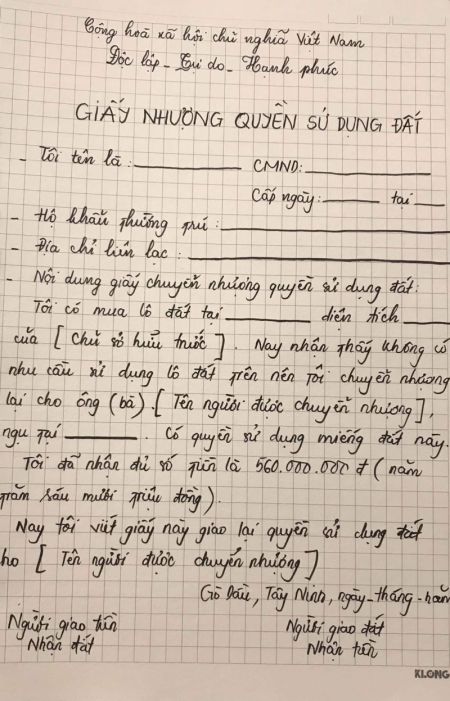 Cộng hoà xã hội chủ nghĩa Việt Nam
Độc lập - Tự do - Hạnh phúc
GIẤY NHƯỢNG QUYỀN SỬ DỤNG ĐẤT
- Tôi tên là: ________ CMND: ________
Cấp ngày: ______ tại ____
- Hộ khẩu thường trú: ________
- Địa chỉ liên lạc: ________
- Nội dung giấy chuyển nhượng quyền sử dụng đất:
Tôi có mua lô đất tại ______ diện tích ______
của [Chủ sở hữu trước]. Nay nhận thấy không có
nhu cầu sử dụng lô đất trên nên tôi chuyển nhượng
lại cho ông (bà) [Tên người được chuyển nhượng],
ngụ tại ______. Có quyền sử dụng miếng đất này.
Tôi đã nhận đủ số tiền là 560.000.000 đ (năm
trăm sáu mươi triệu đồng).
Nay tôi viết giấy này giao lại quyền sử dụng đất
ho [Tên người được chuyển nhượng]
Gò Dầu, Tây Ninh, ngày - tháng - năm
Người giao tiền Người giao đất
Nhận đất Nhận tiền
KLONG